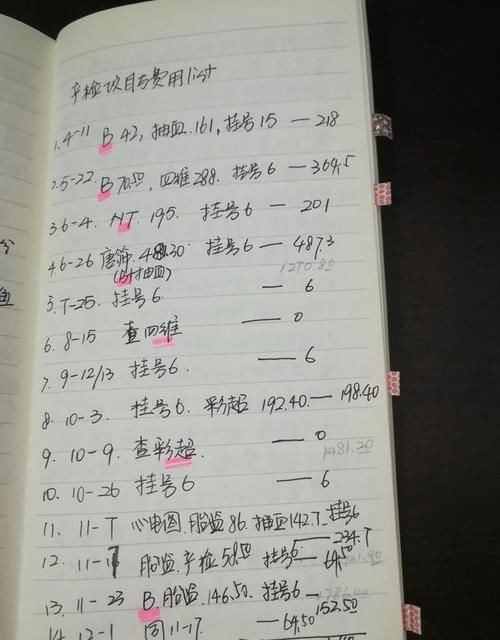 产检项目与费用list
1. 4-11 B 42, 抽血.161, 挂号15 — 218
2. 5-22. B 70.50, 四维288. 挂号6 — 364.5
3. 6-4. NT. 195. 挂号6 — 201
4. 6-26 唐筛. 481.30 挂号6 — 487.3
(抽血) 1270.80
5. 7-25. 挂号6. — 6
6. 8-15 查四维 — 0
7. 9-12/13 挂号6. — 6
8. 10-3. 挂号6. 彩超 192.40. — 198.40
9. 10-9. 查彩超. — 0
1481.20
10. 10-26 挂号6 — 6
11. 11-7 心电图. 胎监86. 抽血142.7. 挂号6
— 234.7
12. 11-17 胎监. 产检58.50 挂号6 — 64.50
13. 11-23 B. 胎监. 146.50. 挂号6 —
152.50
14. 12-1 同11-17 — 64.50